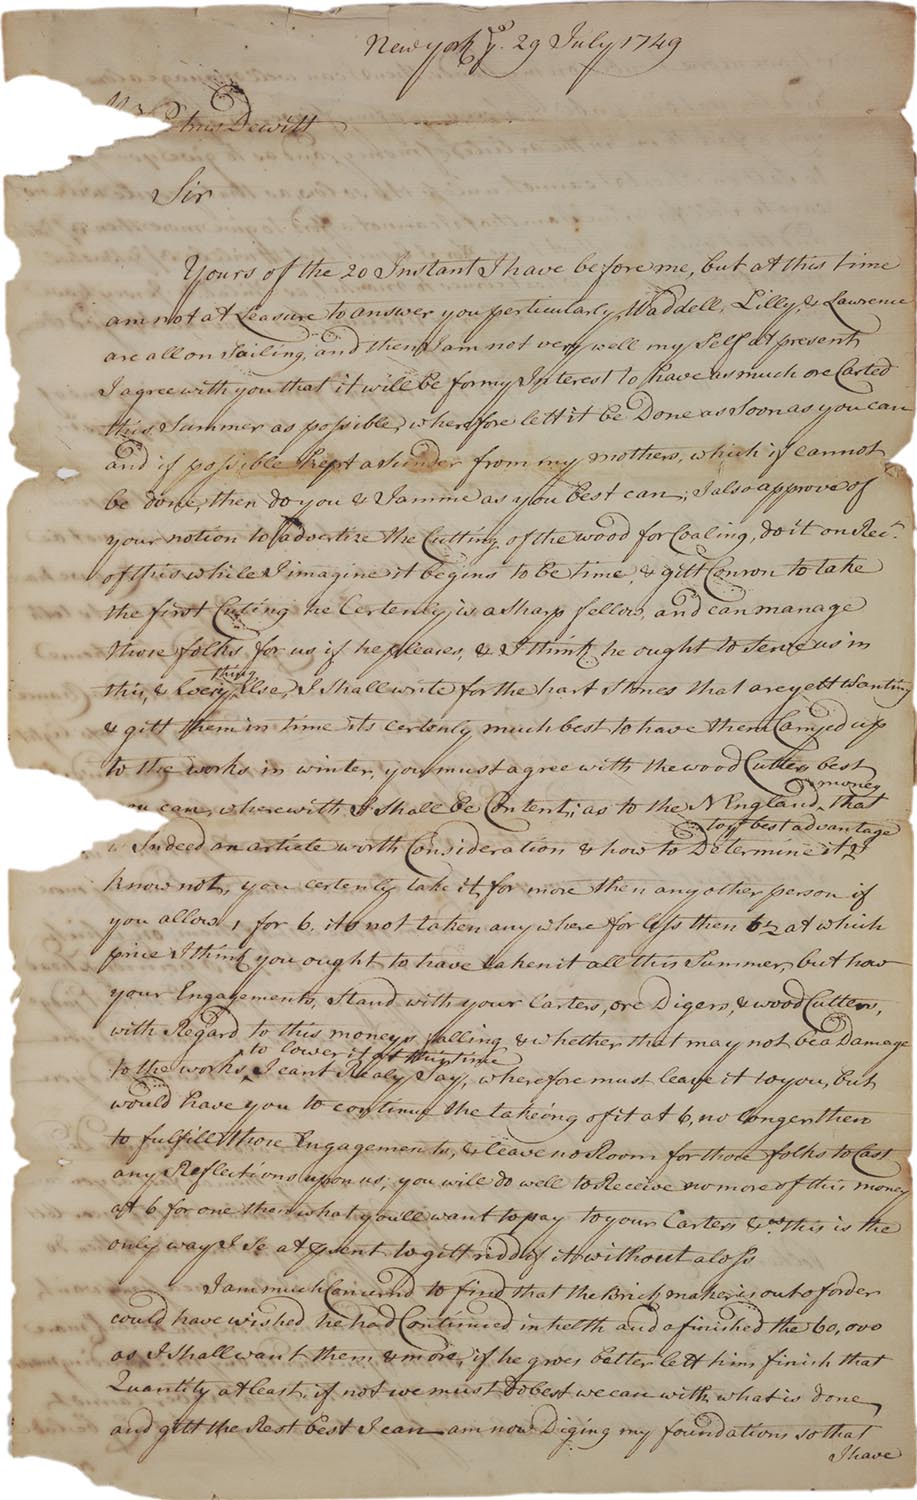 New york ye. 29 July 1749
Mr Petrus Dewitt
Sir
Yours of the 20 Instant I have before me, but at this time
am not at Leasure to answer you perticularly, Waddell, Lilly, & Lawrence
are all on Sailing, and then I am not very well my Self at present
I agree with you that it will be for my Interest to have as much ore Carted
this Summer as possible, wherefore lett it be Done as Soon as you can
and if possible kept a Sunder from my mothers, which if cannot
be done, then do you & Jamme as you best can; I also approve of
your notion to advertize the Cutting of the wood for Coaling, do it on Rect.
of this while I imagine it begins to be time, & gitt Conron to take
the first Cuting he Certenly is a sharp fellow, and can manage
those folks for us if he pleases, & I think he ought to Serve us in
this, & Every thing Else, I Shall write for the hart Stones that are yett Wanting
& gitt them in time its certenly much best to have them Carryed up
to the works in winter, you must agree with the wood Cutters best
you can, wherewith I Shall be Content; as to the N England money that
is Indeed an article worth Consideration & how to Determine it to ye best advantage I
know not, you certenly take it, for more then any other person if
you allow 1 for 6, its not taken any where for less then 6½ at which
price I think you ought to have taken it all this Summer, but how
your Engagements, Stand with your Carters, ore Digers, & wood Cutters,
with Regard to this moneys falling & whether that may not be a Damage
to the works to lower it at this time I cant Realy Say, wherefore must leave it to you, but
would have you to continue the takeing of it at 6, no longer then
to fulfill those Engagements, & leave no Room for those folks to Cast
any Reflections upon us; you will do well to Receive no more of this money
at 6 for one then what you'll want to pay to your Carters &ca. this is the
only way I Se at psent to gitt ridd of it without a loss
I am much Concernd to find that the Brick maker is out of order
could have wished he had Continued in helth and a finished the 60,000
as I Shall want them & more, if he grows better lett him finish that
Quantity at least, if not we must do best we can with what is done
and gitt the Rest best I can am now Diging my foundations so that
I have